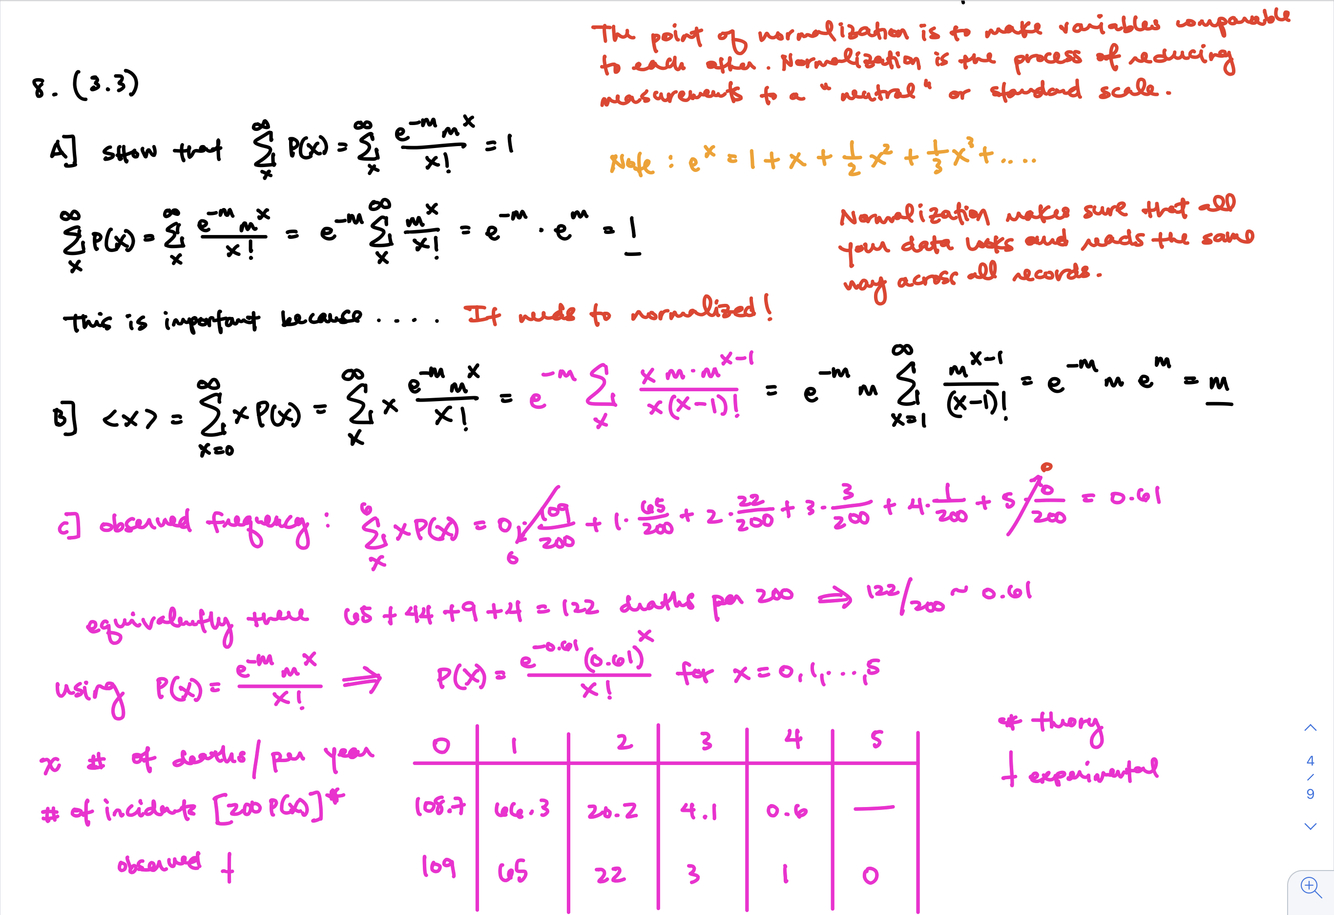 The point of normalization is to make variables comparable
to each other. Normalization is the process of reducing
measurements to a "neutral" or standard scale.
8. (3.3)
A] show that ∞∑x P(x) = ∞∑x e^-m m^x / x! = 1
Note : e^x = 1 + x + 1/2 x^2 + 1/3 x^3 + ....
∞∑x P(x) = ∞∑x e^-m m^x / x! = e^-m ∞∑x m^x / x! = e^-m · e^m = 1
Normalization makes sure that all
your data looks and reads the same
way across all records.
This is important because .... It needs to normalized!
B] <x> = ∞∑x=0 x P(x) = ∞∑x x e^-m m^x / x! = e^-m ∑x x m·m^x-1 / x(x-1)! = e^-m m ∞∑x=1 m^x-1 / (x-1)! = e^-m m e^m = m
C] observed frequency : 6∑x x P(x) = 0 · 109/200 + 1· 65/200 + 2 · 22/200 + 3 · 3/200 + 4 · 1/200 + 5 · 0/200 = 0.61
0
equivalently there 65 + 44 + 9 + 4 = 122 deaths per 200 ⇒ 122/200 ~ 0.61
using P(x) = e^-m m^x / x! ⇒ P(x) = e^-0.61 (0.61)^x / x! for x = 0, 1, ..., 5
* theory
† experimental
x # of deaths / per year 0 1 2 3 4 5
# of incidents [200 P(x)]* 108.7 66.3 20.2 4.1 0.6 —
observed † 109 65 22 3 1 0
4
/
9